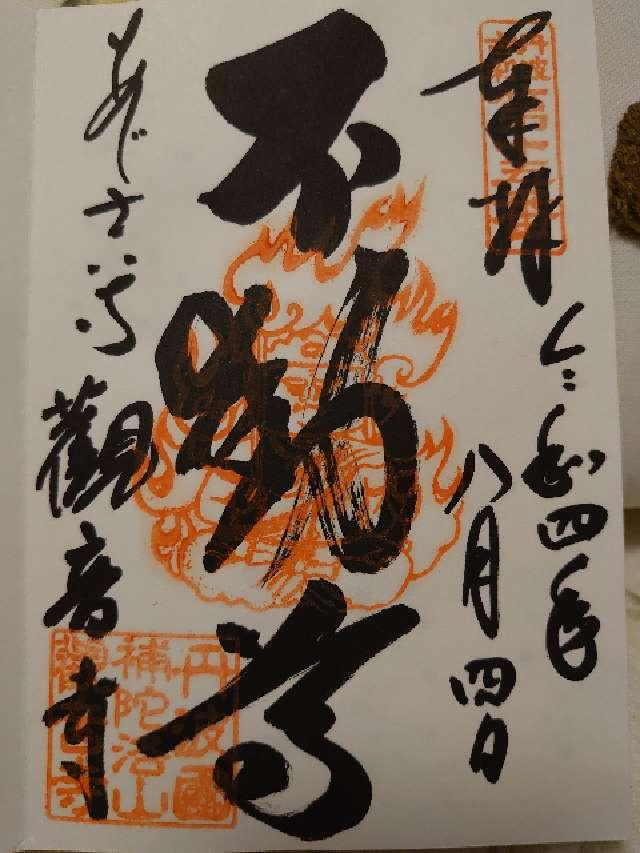 奉拝
令和四年
八月四日
不動尊
あじさい寺
觀音寺
丹波國
補陀洛山
觀音寺